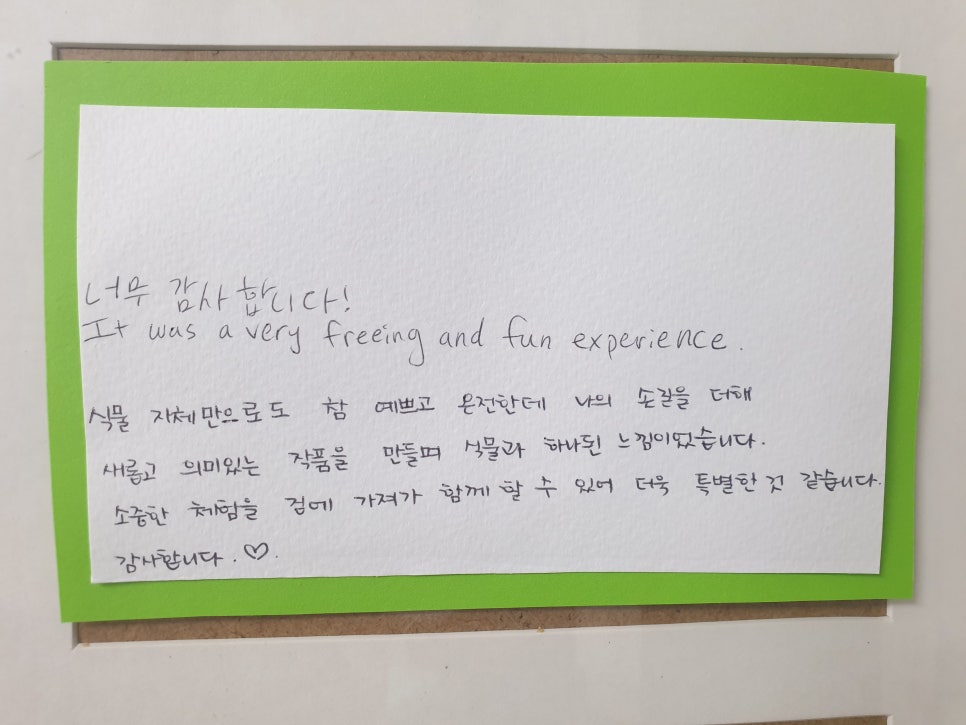 너무 감사합니다!
It was a very freeing and fun experience.
식물 자체만으로도 참 예쁘고 온전한데 나의 손길을 더해
새롭고 의미있는 작품을 만들며 식물과 하나된 느낌이었습니다.
소중한 체험을 집에 가져가 함께 할 수 있어 더욱 특별한 것 같습니다.
감사합니다. ♡.